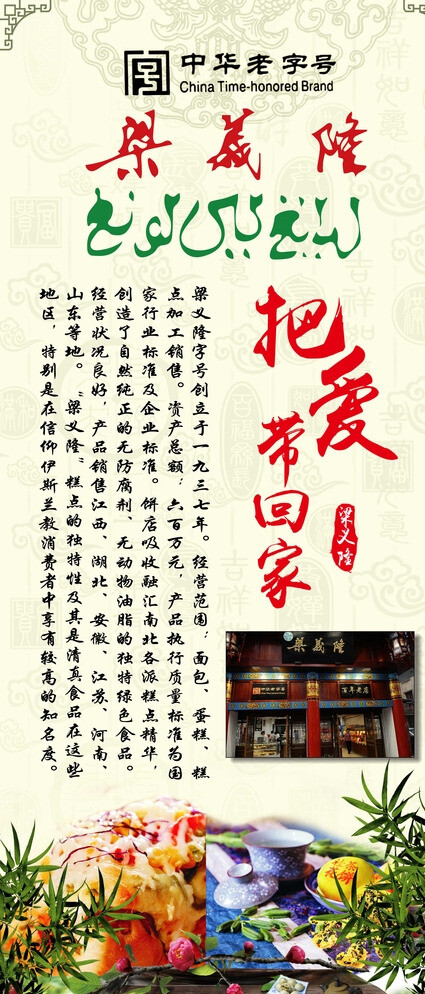 中华老字号
China Time-honored Brand
梁義隆
把爱
带回家
梁义隆
梁义隆字号创立于一九三七年。经营范围：面包、蛋糕、糕
点加工销售。资产总额：六百万元，产品执行质量标准为国
家行业标准及企业标准。饼店吸收融汇南北各派糕点精华，
创造了自然纯正的无防腐剂、无动物油脂的独特绿色食品。
经营状况良好，产品销售江西、湖北、安徽、江苏、河南、
山东等地。“梁义隆”糕点的独特性及其是清真食品在这些
地区，特别是在信仰伊斯兰教消费者中享有较高的知名度。
梁義隆
中华老字号
百年老店
吉祥如意
吉祥如意